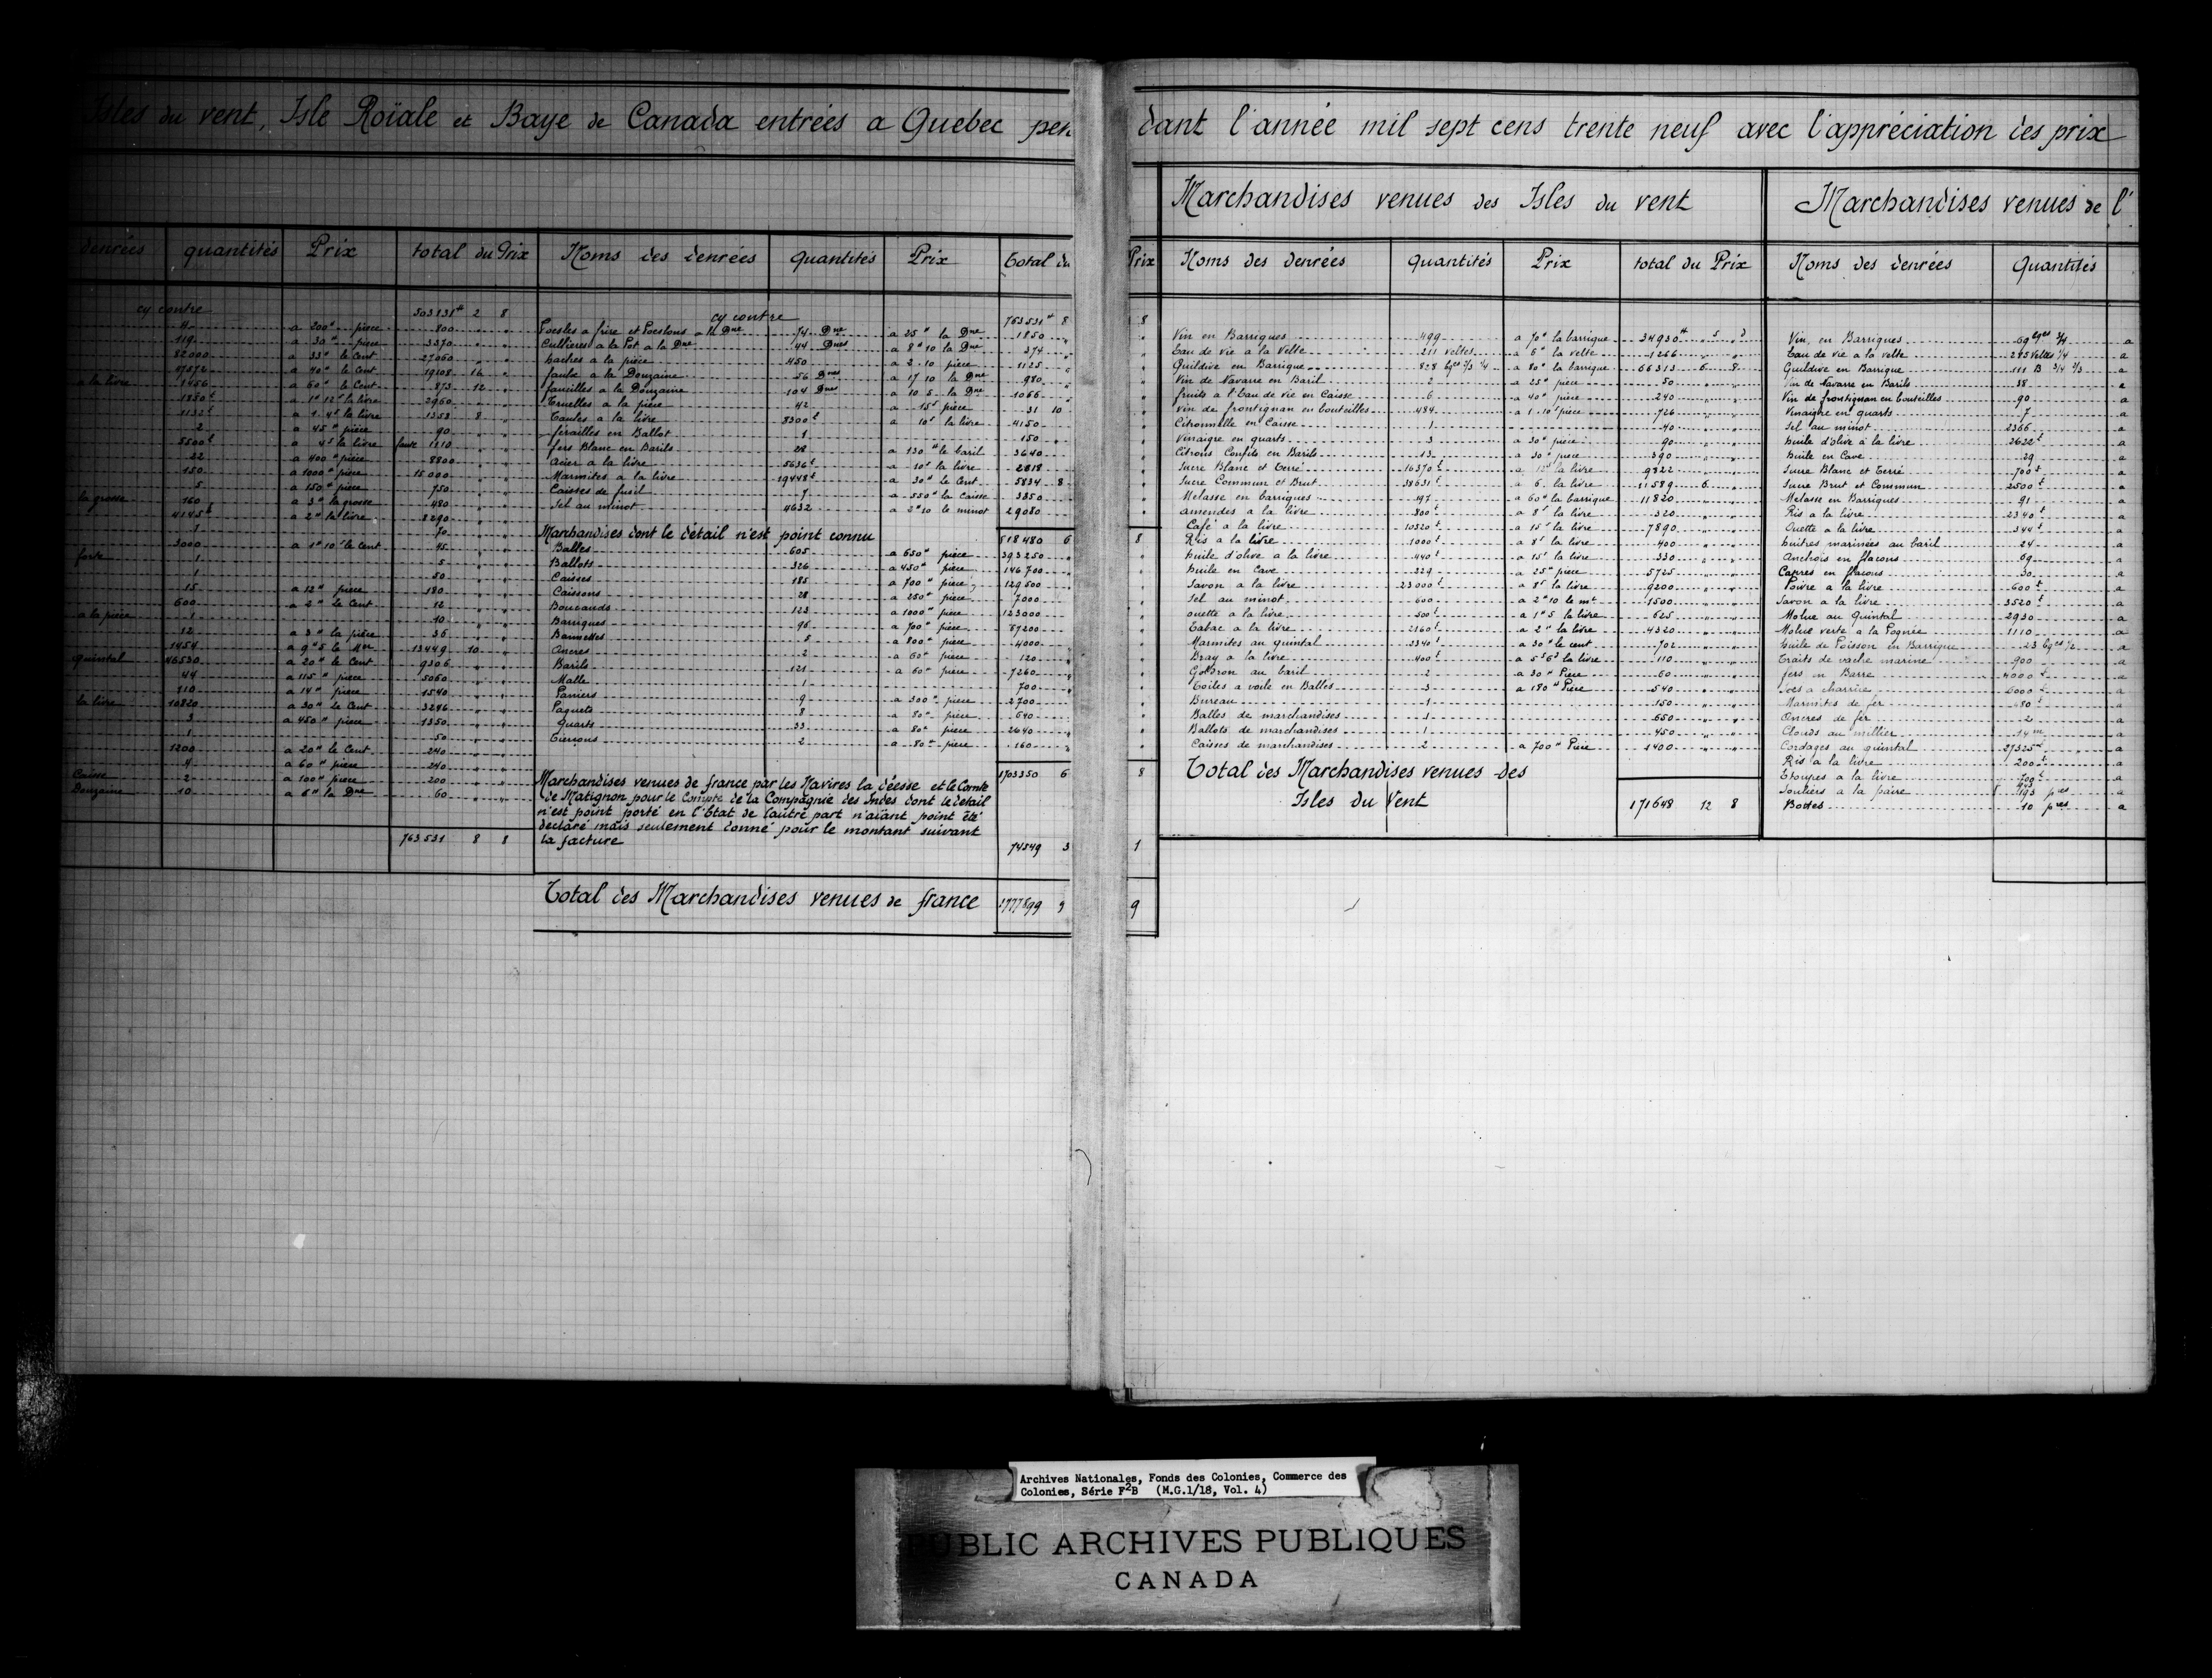 Isles du vent, Isle Roïale et Baye de Canada entrées a Quebec pen dant l'année mil sept cens trente neuf avec l'appréciation des prix
denrées quantités Prix total du Prix
cy contre 503831# 2 8
4 a 200# pièce 800 " "
119 a 30# pièce 3570 " "
82000 a 33# le Cent 27060 " "
a 40# le Cent 19108 16 "
a la livre 1456 a 60# le Cent 873 12 "
a 1# 12s la livre 2960 " "
1132t a 1. 4s la livre 1358 8 "
2 a 45# pièce 90 " "
5500t a 4s la livre 1210 " "
22 a 400# pièce 8800 " "
150 a 1000# pièce 15000 " "
5 a 150# pièce 750 " "
la grosse 160 a 3# la grosse 480 " "
4145t a 2# la livre 8290 " "
70 " "
3000 a 1# 10s le Cent 45 " "
1 5 " "
1 50 " "
15 a 12# pièce 180 " "
600 a 2# le Cent 12 " "
a la pièce 1 10 " "
12 a 3# la pièce 36 " "
1454 a 9# 5 le Mer 13449 10 "
quintal 46530 a 20# le Cent 9306 " "
44 a 115# pièce 5060 " "
110 a 14# pièce 1540 " "
la livre 10820 a 30# le Cent 3246 " "
3 a 450# pièce 1350 " "
1 50 " "
1200 a 20# le Cent 240 " "
4 a 60# pièce 240 " "
Caisse 2 a 100# pièce 200 " "
Douzaine 10 a 6# la Dne 60 " "
763531 8 8
Noms des denrées Quantités Prix total du Prix
cy contre 763531# 8 8
Poesles a frire et Poeslons a la Dne 74 Dne a 25# la Dne 1850 "
Cullieres a la Pot a la Dne 44 Dnes a 8# 10 la Dne 374 "
haches a la pièce 450 a 2. 10 pièce 1125 "
faulx a la Douzaine 56 Dnes a 17 10 la Dne 980 "
faucilles a la Douzaine 104 Dnes a 10 5 la Dne 1066 "
Truelles a la pièce 42 a 15s pièce 31 10
Taules a la livre 8300t a 10s la livre 4150 "
férailles en Ballot 1 150 "
fers Blanc en Barils 28 a 130# le baril 3640 "
Acier a la livre 5636t a 10s la livre 2818 "
Marmites a la livre 19448t a 30# le Cent 5834 8
Caisses de fusil 7 a 550# la Caisse 3850
Sel au minot 11632 a 2# 10 le minot 29080
Marchandises dont le détail n'est point connu 818480 6 8
Balles 605 a 650# pièce 393250 "
Ballots 326 a 450# pièce 146700 "
Caisses 185 a 700# pièce 129500 "
Caissons 28 a 250# pièce 7000 "
Boucauds 123 a 1000# pièce 123000 "
Barriques 96 a 700# pièce 67200 "
Bannettes 5 a 800# pièce 4000 "
Ancres 2 a 60# pièce 120 "
Barils 121 a 60# pièce 7260 "
Malle 1 700 "
Paniers 9 a 300# pièce 2700 "
Paquets 8 a 80# pièce 640 "
Quarts 33 a 80# pièce 2640 "
Tierçons 2 a 80# pièce 160 "
1703350 6 8
Marchandises venues de france par les Navires la déesse et le Comte
de Matignon pour le Compte de la Compagnie des Indes dont le détail
n'est point porté en l'Etat de l'autre part n'aïant point été
declaré mais seulement donné pour le montant suivant
la facture 74549 3 1
Total des Marchandises venues de france 1777899 9 9
Marchandises venues des Isles du vent
Noms des denrées Quantités Prix total du Prix
Vin en Barriques 499 a 70# la barrique 34930# s d
Eau de vie a la Velte 211 veltes a 6# la velte 1266 " "
Guildive en Barrique 828 bques 2/3 1/4 a 80# la barrique 66313 6 8
Vin de Navarre en Baril 2 a 25# pièce 50 " "
fruits a l'Eau de vie en Caisse 6 a 40# pièce 240 " "
Vin de frontignan en bouteilles 484 a 1. 10s pièce 726 " "
Citronnelle en Caisse 1 40 " "
Vinaigre en quarts 3 a 30# pièce 90 " "
Citrons Confits en Barils 13 a 30# pièce 390 " "
Sucre Blanc et Terré 16370t a 12s la livre 9822 " "
Sucre Commun et Brut 38631t a 6. la livre 11589 6 "
Melasse en barriques 197 a 60# la barrique 11820 " "
amendes a la livre 800t a 8s la livre 320 " "
Café a la livre 10520t a 15s la livre 7890 " "
Ris a la livre 1000t a 8s la livre 400 " "
huile d'olive a la livre 440t a 15s la livre 330 " "
huile en Cave 229 a 25# pièce 5725 " "
Savon a la livre 23000t a 8s la livre 9200 " "
Sel au minot 600 a 2# 10 le mt 1500 " "
ouette a la livre 500t a 1# 5 la livre 625 " "
Tabac a la livre 2160t a 2# la livre 4320 " "
Marmites au quintal 2340t a 30# le cent 702 " "
Bray a la livre 400t a 5s 6d la livre 110 " "
Goldron au baril 2 a 30# Pièce 60 " "
Toiles a voile en Balles 3 a 180# Pièce 540 " "
Bureau 1 150 " "
Balles de marchandises 1 650 " "
Ballots de marchandises 1 450 " "
Caisses de marchandises 2 a 700# Pièce 1400 " "
Total des Marchandises venues des
Isles du Vent 171648 12 8
Marchandises venues de l'
Noms des denrées Quantités
Vin en Barriques 69 bques 3/4 a
Eau de vie a la velte 285 veltes 1/4 a
Guildive en Barrique 111 B 3/4 1/3 a
Vin de Navarre en Barils 38 a
Vin de frontignan en bouteilles 90 a
Vinaigre en quarts 7 a
Sel au minot 2366 a
huile d'olive a la livre 2622t a
huile en Cave 29 a
Sucre Blanc et Terré 700t a
Sucre Brut et Commun 2500t a
Melasse en Barriques 91 a
Ris a la livre 2340t a
Ouette a la livre 344t a
huitres marinées au baril 24 a
Anchois en flacons 69 a
Capres en flacons 30 a
Poivre a la livre 600t a
Savon a la livre 3520t a
Molue au Quintal 2930 a
Molue verte a la Pognée 1110 a
huile de Poisson en Barrique 23 bques 1/2 a
Traits de vache marine 900 a
fers en Barre 4000t a
Socs a charrüe 6000t a
Marmites de fer a
Ancres de fer 2 a
Clouds au millier 14 m a
Cordages au quintal 27325t a
Ris a la livre 200t a
Etoupes a la livre 700t a
Souliers a la paire 193 pres a
Bottes 10 pres a
Archives Nationales, Fonds des Colonies, Commerce des
Colonies, Série F2B (M.G.1/18, Vol. 4)
PUBLIC ARCHIVES PUBLIQUES
CANADA